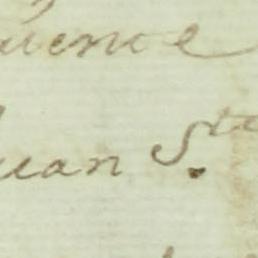 uence
uan Ste